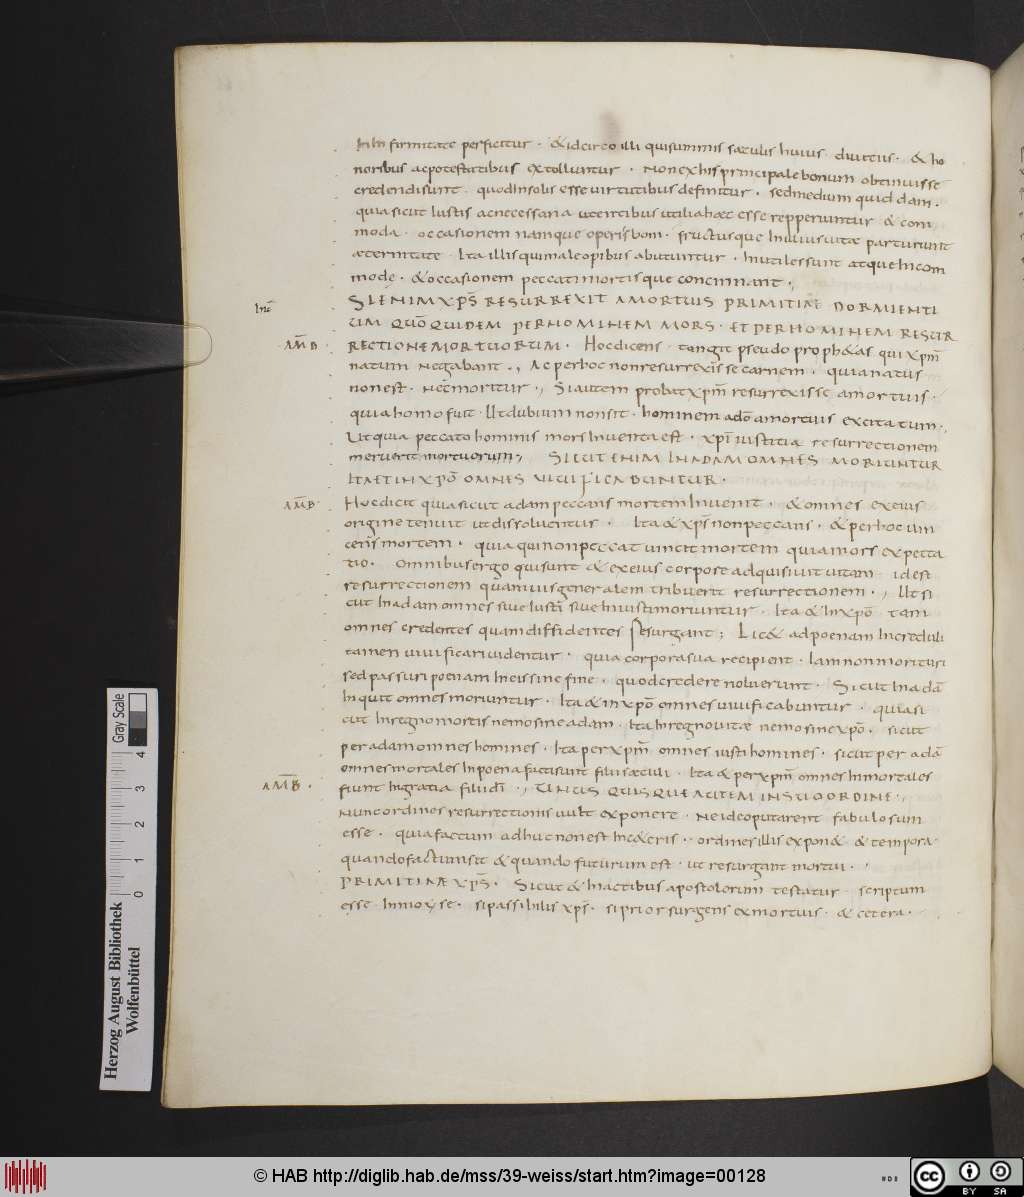 In infirmitate perficitur. & idcirco illi qui summis saeculis huius diuitiis. & ho
noribus ac potestatibus extolluntur. Non ex his principale bonum obtinuisse
credendi sunt. quod in solis esse uirtutibus definitur. sed medium quiddam.
quia sicut iustis ac necessaria utentibus utilia haec esse repperiuntur & com
moda. occasionem namque operis boni. fructusque In diuis uitae parturiunt
aeternitate. Ita illis qui male opibus abutuntur. Inutiles sunt atque Incom
mode. & occasionem peccati mortisque concinnant.,
Inc̄
SI ENIM XP̄S RESURREXIT A MORTUIS PRIMITIAE DORMIENTI
UM QUŌ QUIDEM PER HOMINEM MORS. ET PER HOMINEM RESUR
AM̄B.
RECTIONE MORTUORUM. Hoc dicens tangit pseudo proph&as qui xp̄m
natum negabant., Ac per hoc non resurrexisse carnem. quia natus
non est. nec moritur., Si autem probat xp̄m resurrexisse a mortuis.
quia homo fuit. Ut dubium non sit. hominem a dō a mortuis excitatum.,
Ut quia peccato hominis mors Inuenta est. xp̄i iustitia resurrectionem
meruerit mortuorum, SICUT ENIM IN ADAM OMNES MORIUNTUR
ITA ET IN XP̄O OMNES UIUIFICABUNTUR.
AM̄B.
Hoc dicit quia sicut adam peccans mortem Inuenit. & omnes ex eius
origine tenuit ut dissoluentur. Ita & xp̄s non peccans. & per hoc uin
cens mortem. quia qui non peccat uincit mortem quia mors ex pecca
to. Omnibus ergo qui sunt & ex eius corpore adquisiuit uitam idest
resurrectionem quamuis generalem tribuerit resurrectionem., Ut si
cut In adam omnes siue iusti siue Iniusti moriuntur. Ita & In xp̄o tam
omnes credentes quam diffidentes resurgant; Lic& ad poenam Increduli
tamen uiuificari uidentur. quia corpora sua recipient. Iam non morituri
sed passuri poenam In eis sine fine. quod credere noluerunt. Sicut In adā
Inquit omnes moriuntur. Ita & in xp̄o omnes uiuificabuntur. quia si
cut In regno mortis nemo sine adam. Ita In regno uitae nemo sine xp̄o. sicut
per adam omnes homines. Ita per xp̄m omnes iusti homines. sicut per adā
omnes mortales In poena facti sunt filii saeculi. Ita & per xp̄m omnes Inmortales
AM̄B.
fiunt In gratia filii dī., UNUS QUISQUE AUTEM IN SUO ORDINE.,
Nunc ordines resurrectionis uult exponere. Ne ideo putarent fabulosum
esse. quia factum adhuc non est In c&eris. ordines illis expon& & tempora
quando factum sit & quando futurum est. ut resurgant mortui.,
PRIMITIAE XP̄S. Sicut & In actibus apostolorum testatur scriptum
esse In moyse. si passibilis xp̄s. si prior surgens ex mortuis. & cetera.
Herzog August Bibliothek
Wolfenbüttel
0 1 2 3 4
Gray Scale
© HAB http://diglib.hab.de/mss/39-weiss/start.htm?image=00128
cc BY SA